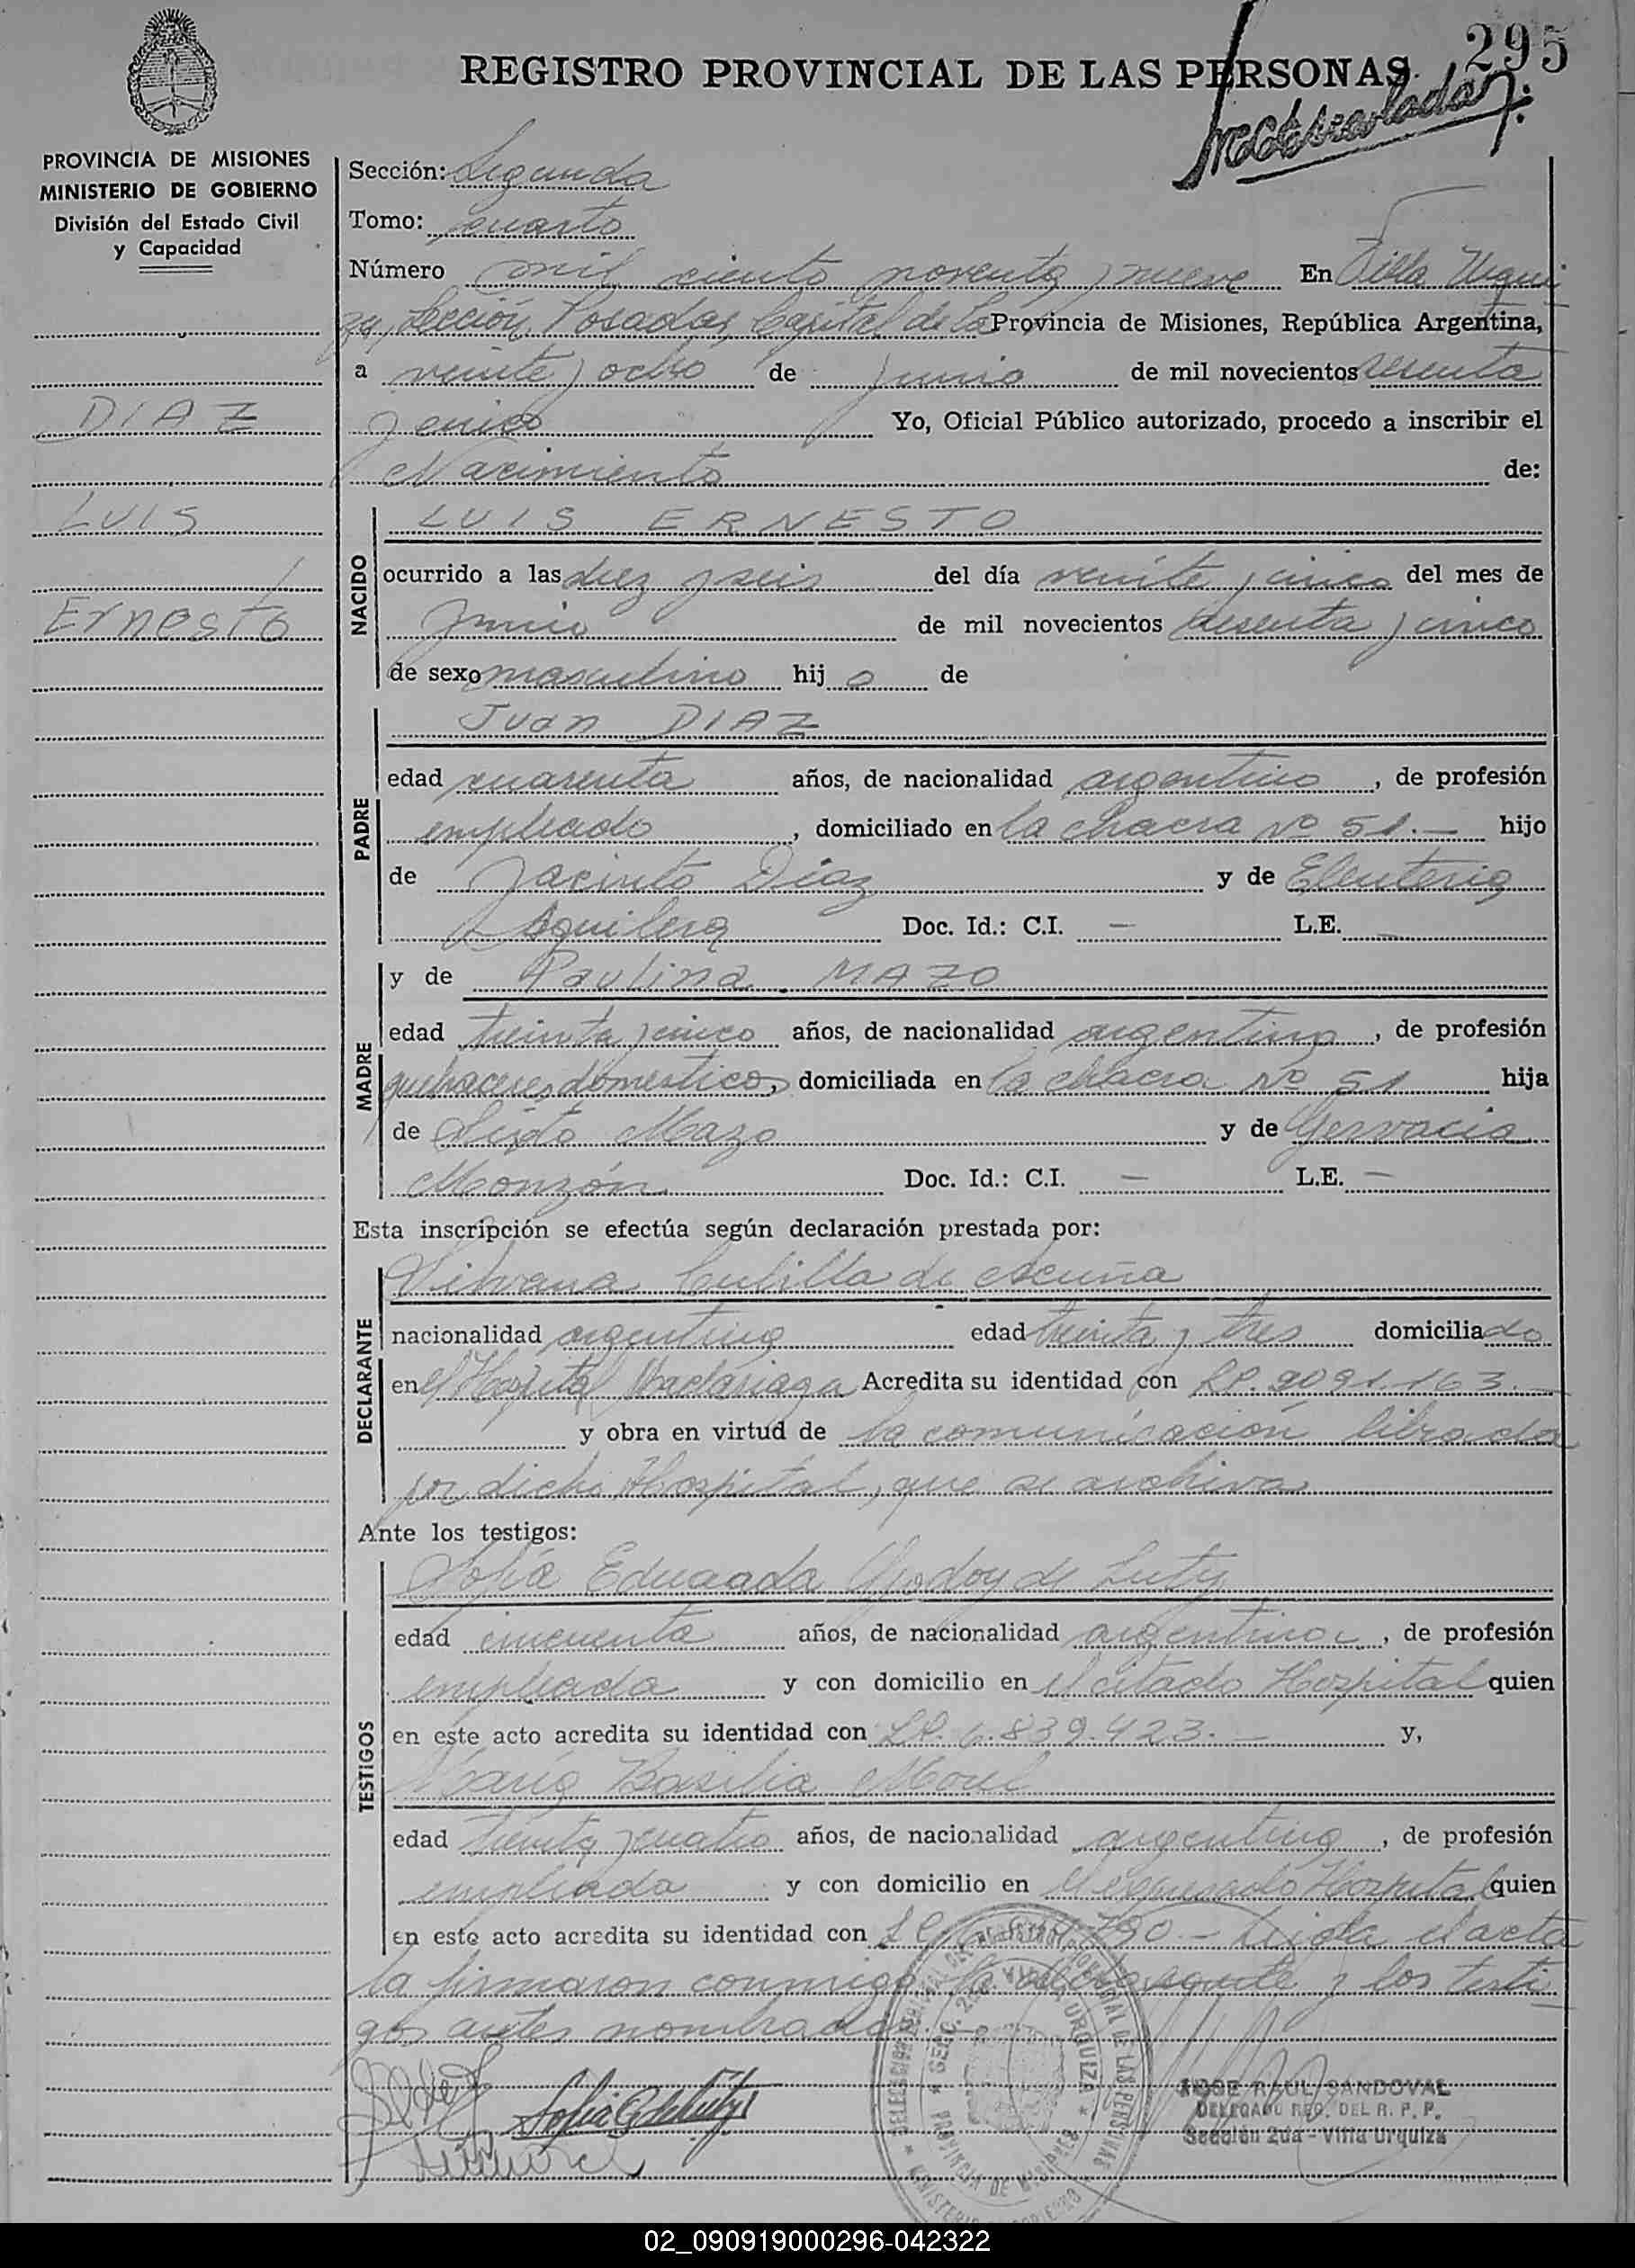 295
REGISTRO PROVINCIAL DE LAS PERSONAS
PROVINCIA DE MISIONES
MINISTERIO DE GOBIERNO
División del Estado Civil
y Capacidad
DIAZ
LUIS
Ernesto
Sección: Segunda
Tomo: cuarto
Número mil ciento noventa y nueve En Villa Urqui
za, Sección Posadas, Capital de la Provincia de Misiones, República Argentina,
a veinte y ocho de junio de mil novecientos sesenta
y cinco Yo, Oficial Público autorizado, procedo a inscribir el
Nacimiento de:
NACIDO
LUIS ERNESTO
ocurrido a las diez y seis del día veinte y cinco del mes de
Junio de mil novecientos sesenta y cinco
de sexo masculino hij o de
PADRE
Juan DIAZ
edad cuarenta años, de nacionalidad argentino, de profesión
empleado, domiciliado en la chacra Nº 51.— hijo
de Jacinto Díaz y de Eleuteria
Aquilera Doc. Id.: C.I. — L.E. —
MADRE
y de Paulina MAZO
edad treinta y cinco años, de nacionalidad argentina, de profesión
quehaceres domestico, domiciliada en la chacra Nº 51 hija
de Sixto Mazo y de Gervacia
Monzón Doc. Id.: C.I. — L.E. —
Esta inscripción se efectúa según declaración prestada por:
DECLARANTE
Cubilla de Acuña
nacionalidad argentina edad treinta y tres domicilia do
en el Hospital Madariaga Acredita su identidad con LC. 9091.163.—
y obra en virtud de la comunicación librada
por dicho Hospital, que se archiva
Ante los testigos:
TESTIGOS
Sofía Eduarda Godoy de Luty
edad cincuenta años, de nacionalidad argentina, de profesión
empleada y con domicilio en el citado Hospital quien
en este acto acredita su identidad con LC. 6.839.423.— y,
María Basilia Morel
edad treinta y cuatro años, de nacionalidad argentina, de profesión
empleada y con domicilio en el expresado Hospital quien
en este acto acredita su identidad con LC 790.— Leída el acta
la firmaron conmigo la y los testi
gos antes nombrados.
JOSE RAUL SANDOVAL
DELEGADO REG. DEL R. P. P.
Sección 2da - Villa Urquiza
02_090919000296-042322